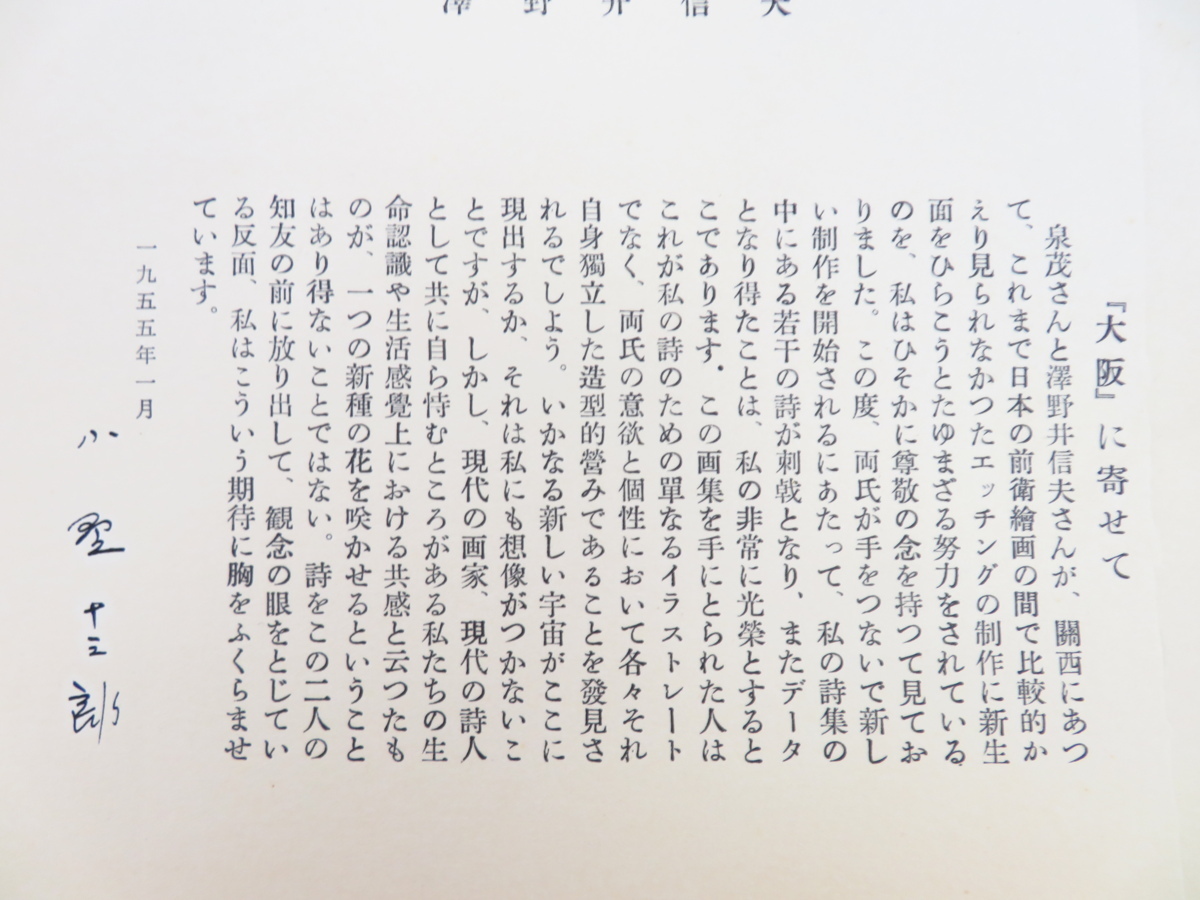 澤野井信夫
『大阪』に寄せて
泉茂さんと澤野井信夫さんが、關西にあつ
て、これまで日本の前衛繪画の間で比較的か
えり見られなかつたエッチングの制作に新生
面をひらこうとたゆまざる努力をされている
のを、私はひそかに尊敬の念を持つて見てお
りました。この度、両氏が手をつないで新し
い制作を開始されるにあたって、私の詩集の
中にある若干の詩が刺戟となり、またデータ
となり得たことは、私の非常に光榮とすると
こであります。この画集を手にとられた人は
これが私の詩のための單なるイラストレート
でなく、両氏の意欲と個性において各々それ
自身獨立した造型的營みであることを發見さ
れるでしよう。いかなる新しい宇宙がここに
現出するか、それは私にも想像がつかないこ
とですが、しかし、現代の画家、現代の詩人
として共に自ら恃むところがある私たちの生
命認識や生活感覺上における共感と云つたも
のが、一つの新種の花を咲かせるということ
はあり得ないことではない。詩をこの二人の
知友の前に放り出して、観念の眼をとじてい
る反面、私はこういう期待に胸をふくらませ
ています。
一九五五年一月
小野十三郎